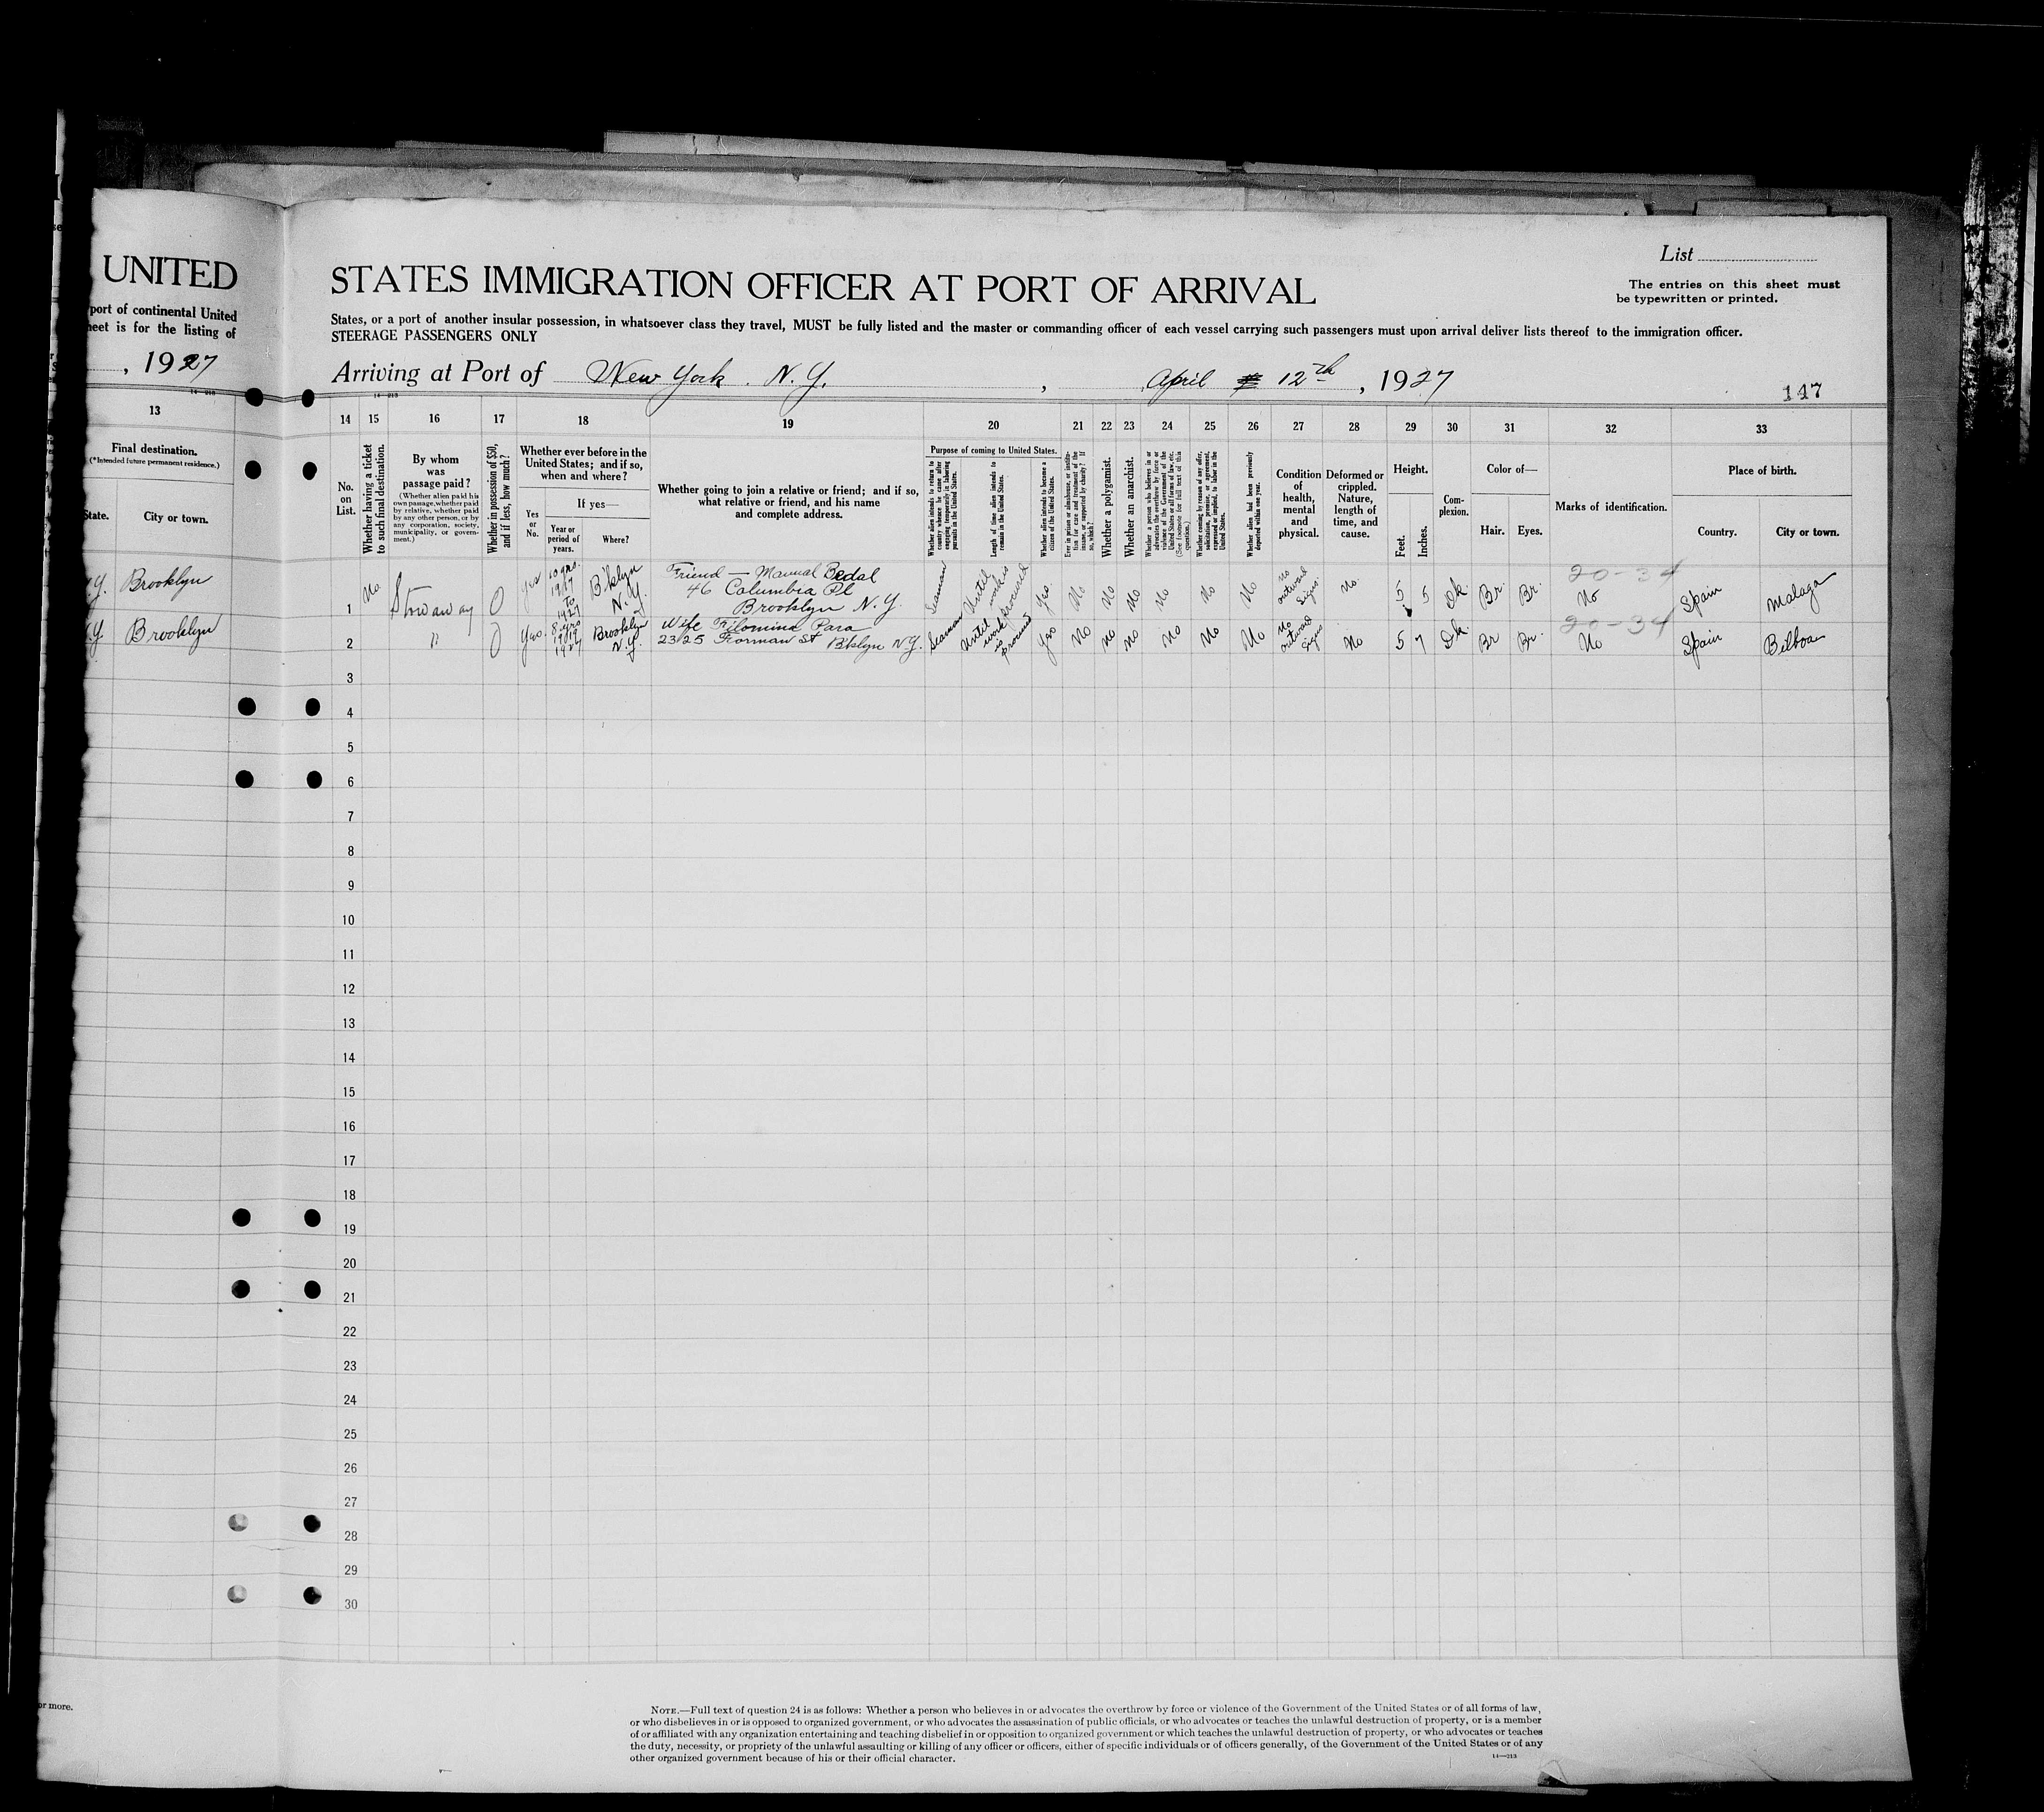 List
The entries on this sheet must
be typewritten or printed.
UNITED
STATES IMMIGRATION OFFICER AT PORT OF ARRIVAL
port of continental United
heet is for the listing of
States, or a port of another insular possession, in whatsoever class they travel, MUST be fully listed and the master or commanding officer of each vessel carrying such passengers must upon arrival deliver lists thereof to the immigration officer.
STEERAGE PASSENGERS ONLY
, 1927
Arriving at Port of New York. N.Y. , April 12th, 1927
147
13
14 15 16 17 18 19 20 21 22 23 24 25 26 27 28 29 30 31 32 33
Final destination.
(*Intended future permanent residence.)
State.
City or town.
No.
on
List.
Whether having a ticket
to such final destination.
By whom
was
passage paid?
(Whether alien paid his
own passage, whether paid
by relative, whether paid
by any other person, or by
any corporation, society,
municipality, or govern-
ment.)
Whether in possession of $50,
and if less, how much?
Whether ever before in the
United States; and if so,
when and where?
Yes
or
No.
If yes—
Year or
period of
years.
Where?
Whether going to join a relative or friend; and if so,
what relative or friend, and his name
and complete address.
Purpose of coming to United States.
Whether alien intends to return to
country whence he came after
engaging temporarily in laboring
pursuits in the United States.
Length of time alien intends to
remain in the United States.
Whether alien intends to become a
citizen of the United States.
Ever in prison or almshouse, or institu-
tion for care and treatment of the
insane, or supported by charity? If
so, which?
Whether a polygamist.
Whether an anarchist.
Whether a person who believes in or
advocates the overthrow by force or
violence of the Government of the
United States or all forms of law, etc.
(See footnote for full text of this
question.)
Whether coming by reason of any offer,
solicitation, promise, or agreement,
expressed or implied, to labor in the
United States.
Whether alien had been previously
deported within one year.
Condition
of
health,
mental
and
physical.
Deformed or
crippled.
Nature,
length of
time, and
cause.
Height.
Feet.
Inches.
Com-
plexion.
Color of—
Hair.
Eyes.
Marks of identification.
Place of birth.
Country.
City or town.
y. Brooklyn
1 No Stowaway 0 yes 10 yrs. 1917 to 1927 B'klyn N.Y. Friend — Manual Bedal
46 Columbia Pl
Brooklyn N.Y. Seaman Until work is procured Yes. No No No No No No No outward signs. No. 5 5 Dk. Br. Br. 20-34 No Spain Malaga
y Brooklyn
2 " 0 Yes. 8 yrs 1919 1927 Brooklyn N.Y. Wife Filomina Para
2325 Forman St B'klyn N.Y. Seaman Until work is procured Yes No No No No No No No outward signs No 5 7 Dk. Br Br. 20-34 No Spain Bilboa
3
4
5
6
7
8
9
10
11
12
13
14
15
16
17
18
19
20
21
22
23
24
25
26
27
28
29
30
or more.
NOTE.—Full text of question 24 is as follows: Whether a person who believes in or advocates the overthrow by force or violence of the Government of the United States or of all forms of law,
or who disbelieves in or is opposed to organized government, or who advocates the assassination of public officials, or who advocates or teaches the unlawful destruction of property, or is a member
of or affiliated with any organization entertaining and teaching disbelief in or opposition to organized government or which teaches the unlawful destruction of property, or who advocates or teaches
the duty, necessity, or propriety of the unlawful assaulting or killing of any officer or officers, either of specific individuals or of officers generally, of the Government of the United States or of any
other organized government because of his or their official character.
14—213